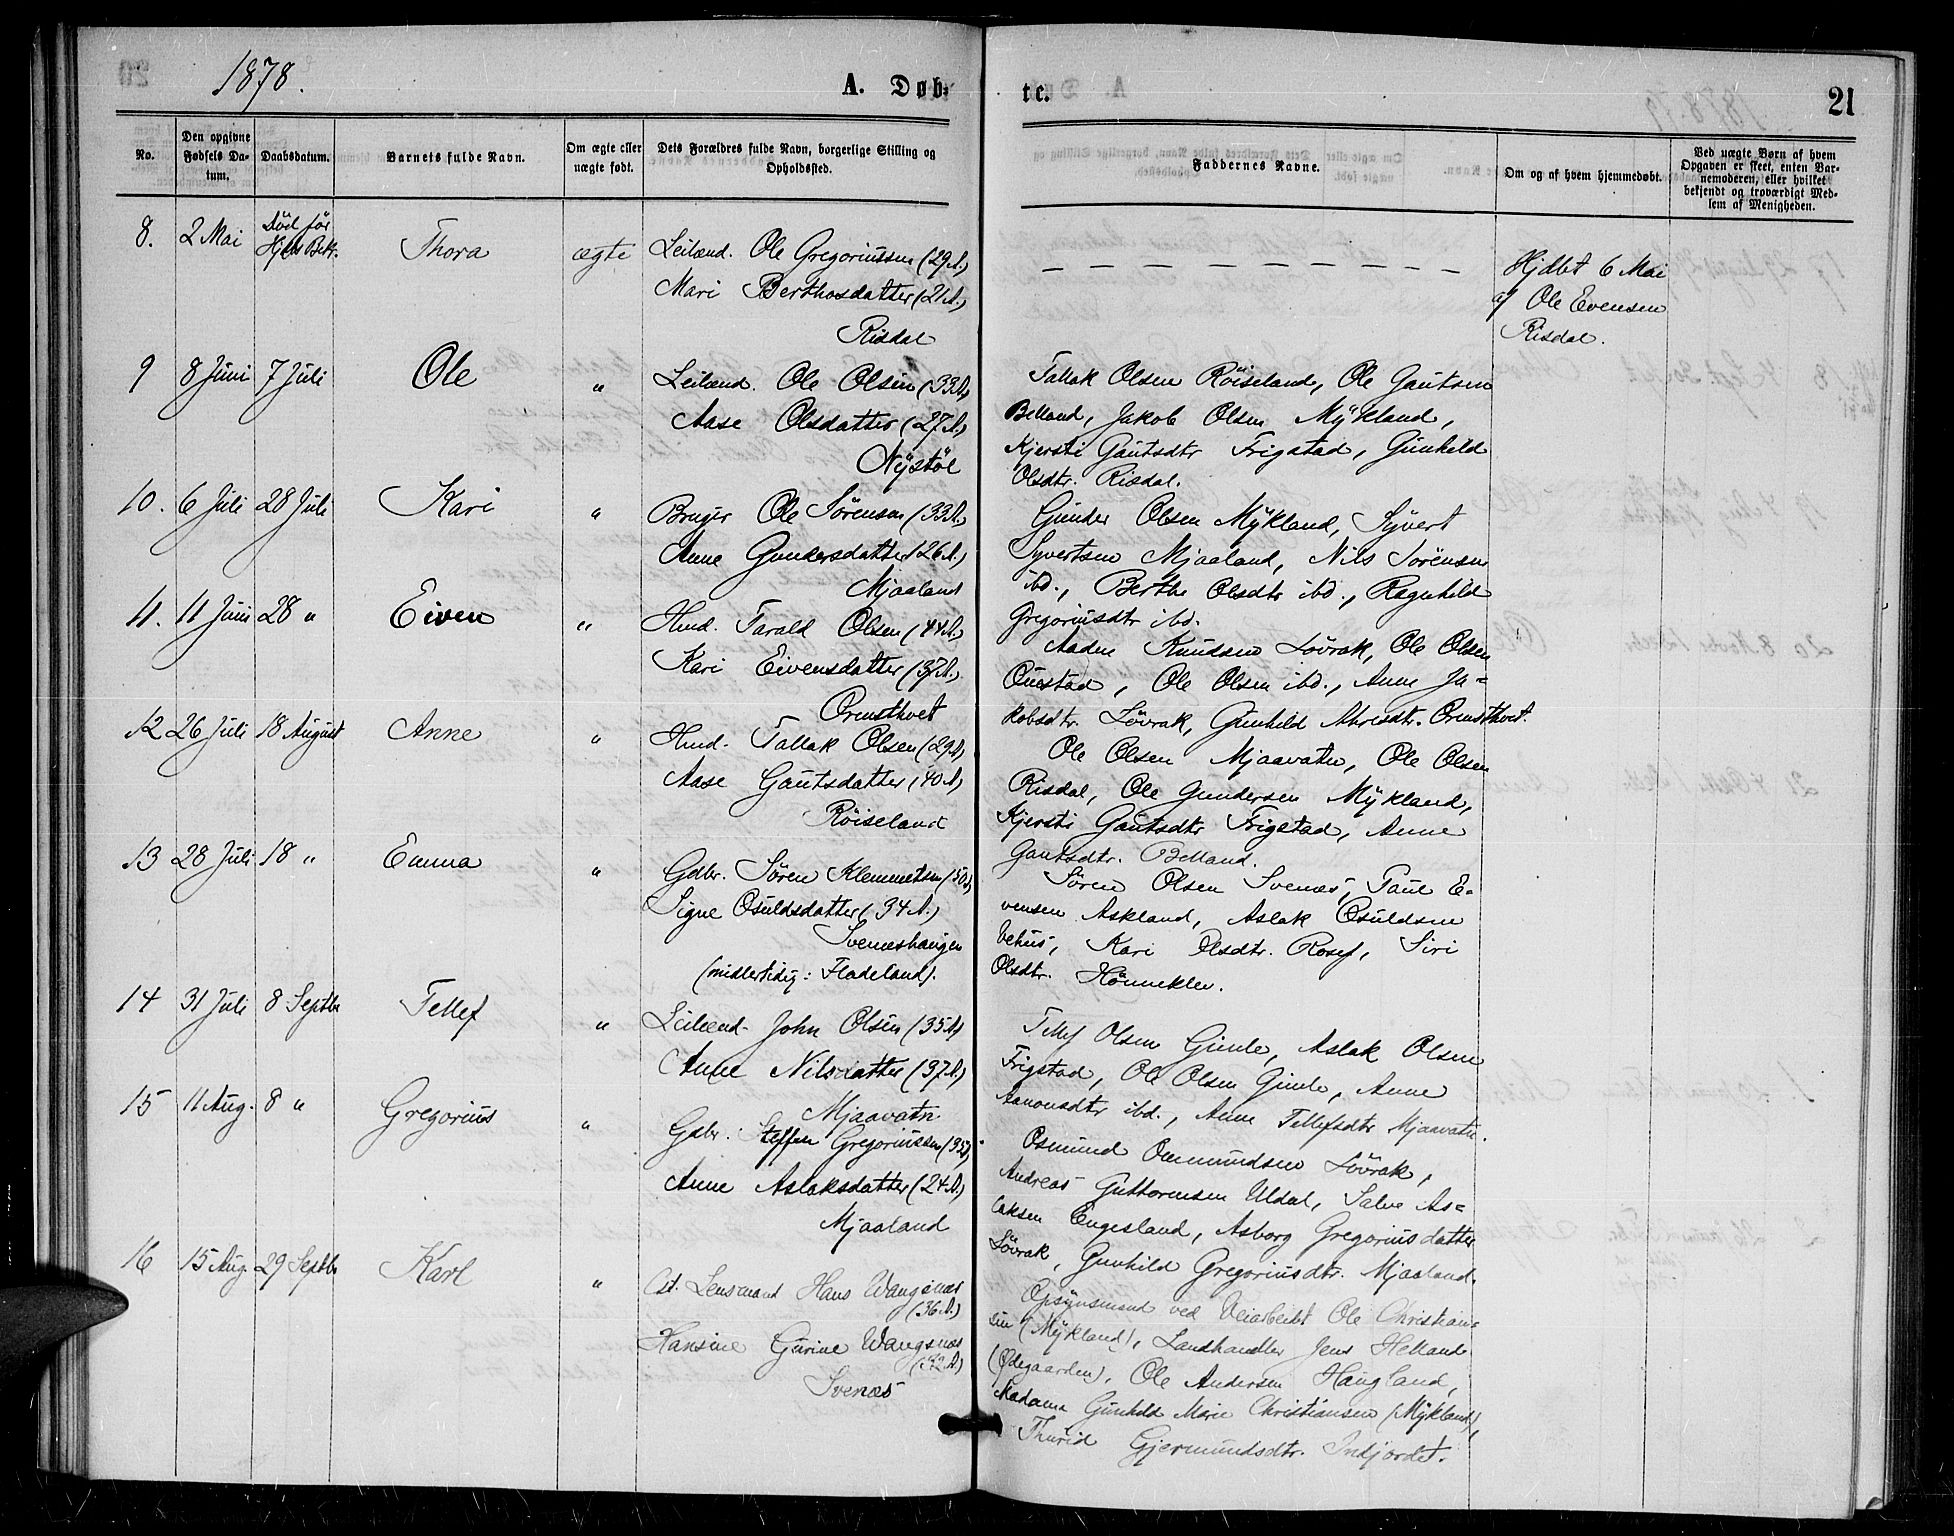 1878.
A. Døb-
te.
21
No.
Den opgivne Fødsels Da-
tum.
Daabsdatum.
Barnets fulde Navn.
Om ægte eller uægte født.
Dets Forældres fulde Navn, borgerlige Stilling og Opholdssted.
Faddernes Navne.
Om og af hvem hjemmedøbt.
Ved uægte Børn af hvem
Opgaven er skeet, enten Bar-
nemoderen, eller hvilket
bekjendt og troværdigt Med-
lem af Menigheden.
8. 2 Mai Død før Thora ægte Leilænd. Ole Gregoriussen (29 A.)
Mari Berthosdatter (21 A.)
Risdal
Hjdbt 6 Mai
af Ole Evensen
Risdal.
9 8 Juni 7 Juli Ole " Leilænd. Ole Olsen (33 A.)
Aase Olsdatter (27 A.)
Nystøl
Tallak Olsen Röiseland, Ole Gautsen
Belland, Jakob Olsen Mykland,
Kjersti Gautsdtr Frigstad, Gunhild
Olsdtr. Risdal.
10. 6 Juli 28 Juli Kari " Bruger Ole Sørensen (33 A.)
Anne Gundersdatter (26 A.)
Mjaaland
Gunder Olsen Mykland, Syvert
Syvertsen Mjaaland, Nils Sørensen
ibd., Berthe Olsdtr ibd., Ragnhild
Gregoriusdtr ibd.
11. 11 Juni 28 " Eiven " Hmd. Tarald Olsen (44 A.)
Kari Eivensdatter (37 A.)
Ormsthvet
Aadne Knudsen Lövrak, Ole Olsen
Ouestad, Ole Olsen ibd., Anne Ja-
kobsdtr. Lövrak, Gunhild Ahresdtr. Ormsthvet.
12 26 Juli 18 August Anne " Hmd. Tallak Olsen (29 A.)
Aase Gautsdatter (40 A.)
Röiseland
Ole Olsen Mjaavatn, Ole Olsen
Risdal, Ole Gundersen Mykland,
Kjersti Gautsdtr Frigstad, Anne
Gautsdtr. Belland.
13 28 Juli 18 " Emma " Gdbr. Søren Klemmetsen (50 A.)
Signe Osuldsdatter (34 A.)
Svenæshaugen
(midlertidig: Fladeland).
Søren Olsen Svenæs, Paul E-
vensen Askland, Aslak Osuldsen
Vehus, Kari Olsdtr. Rosef, Siri
Olsdtr. Hönneklev.
14 31 Juli 8 Septbr Tellef " Leilænd. John Olsen (35 A.)
Anne Nilsdatter (37 A.)
Mjaavatn
Tellef Olsen Gimle, Aslak Olsen
Frigstad, Ole Olsen Gimle, Anne
Aanonsdtr ibd., Anne Tellefsdtr Mjaavatn.
15 11 Aug. 8 " Gregorius " Gdbr. Steffen Gregoriussen (35 A.)
Anne Aslaksdatter (24 A.)
Mjaaland
Osmund Ommundsen Lövrak,
Andreas Guttormsen Uldal, Salve As-
laksen Engesland, Asborg Gregoriusdatter
Lövrak, Gunhild Gregoriusdtr. Mjaaland.
16 15 Aug. 29 Septbr Karl " Cst. Lensmand Hans Wangsnæs
(36 A.)
Hansine Gurine Wangsnæs
(32 A.)
Svenæs
Opsynsmand ved Veiarbeidet Ole Christian-
sen (Mykland), Landhandler Jens Helland
(Ødegaarden), Ole Andersen Haugland,
Madama Gunhild Marie Christiansen (Mykland),
Thurid Gjermundsdtr. Indjordet.